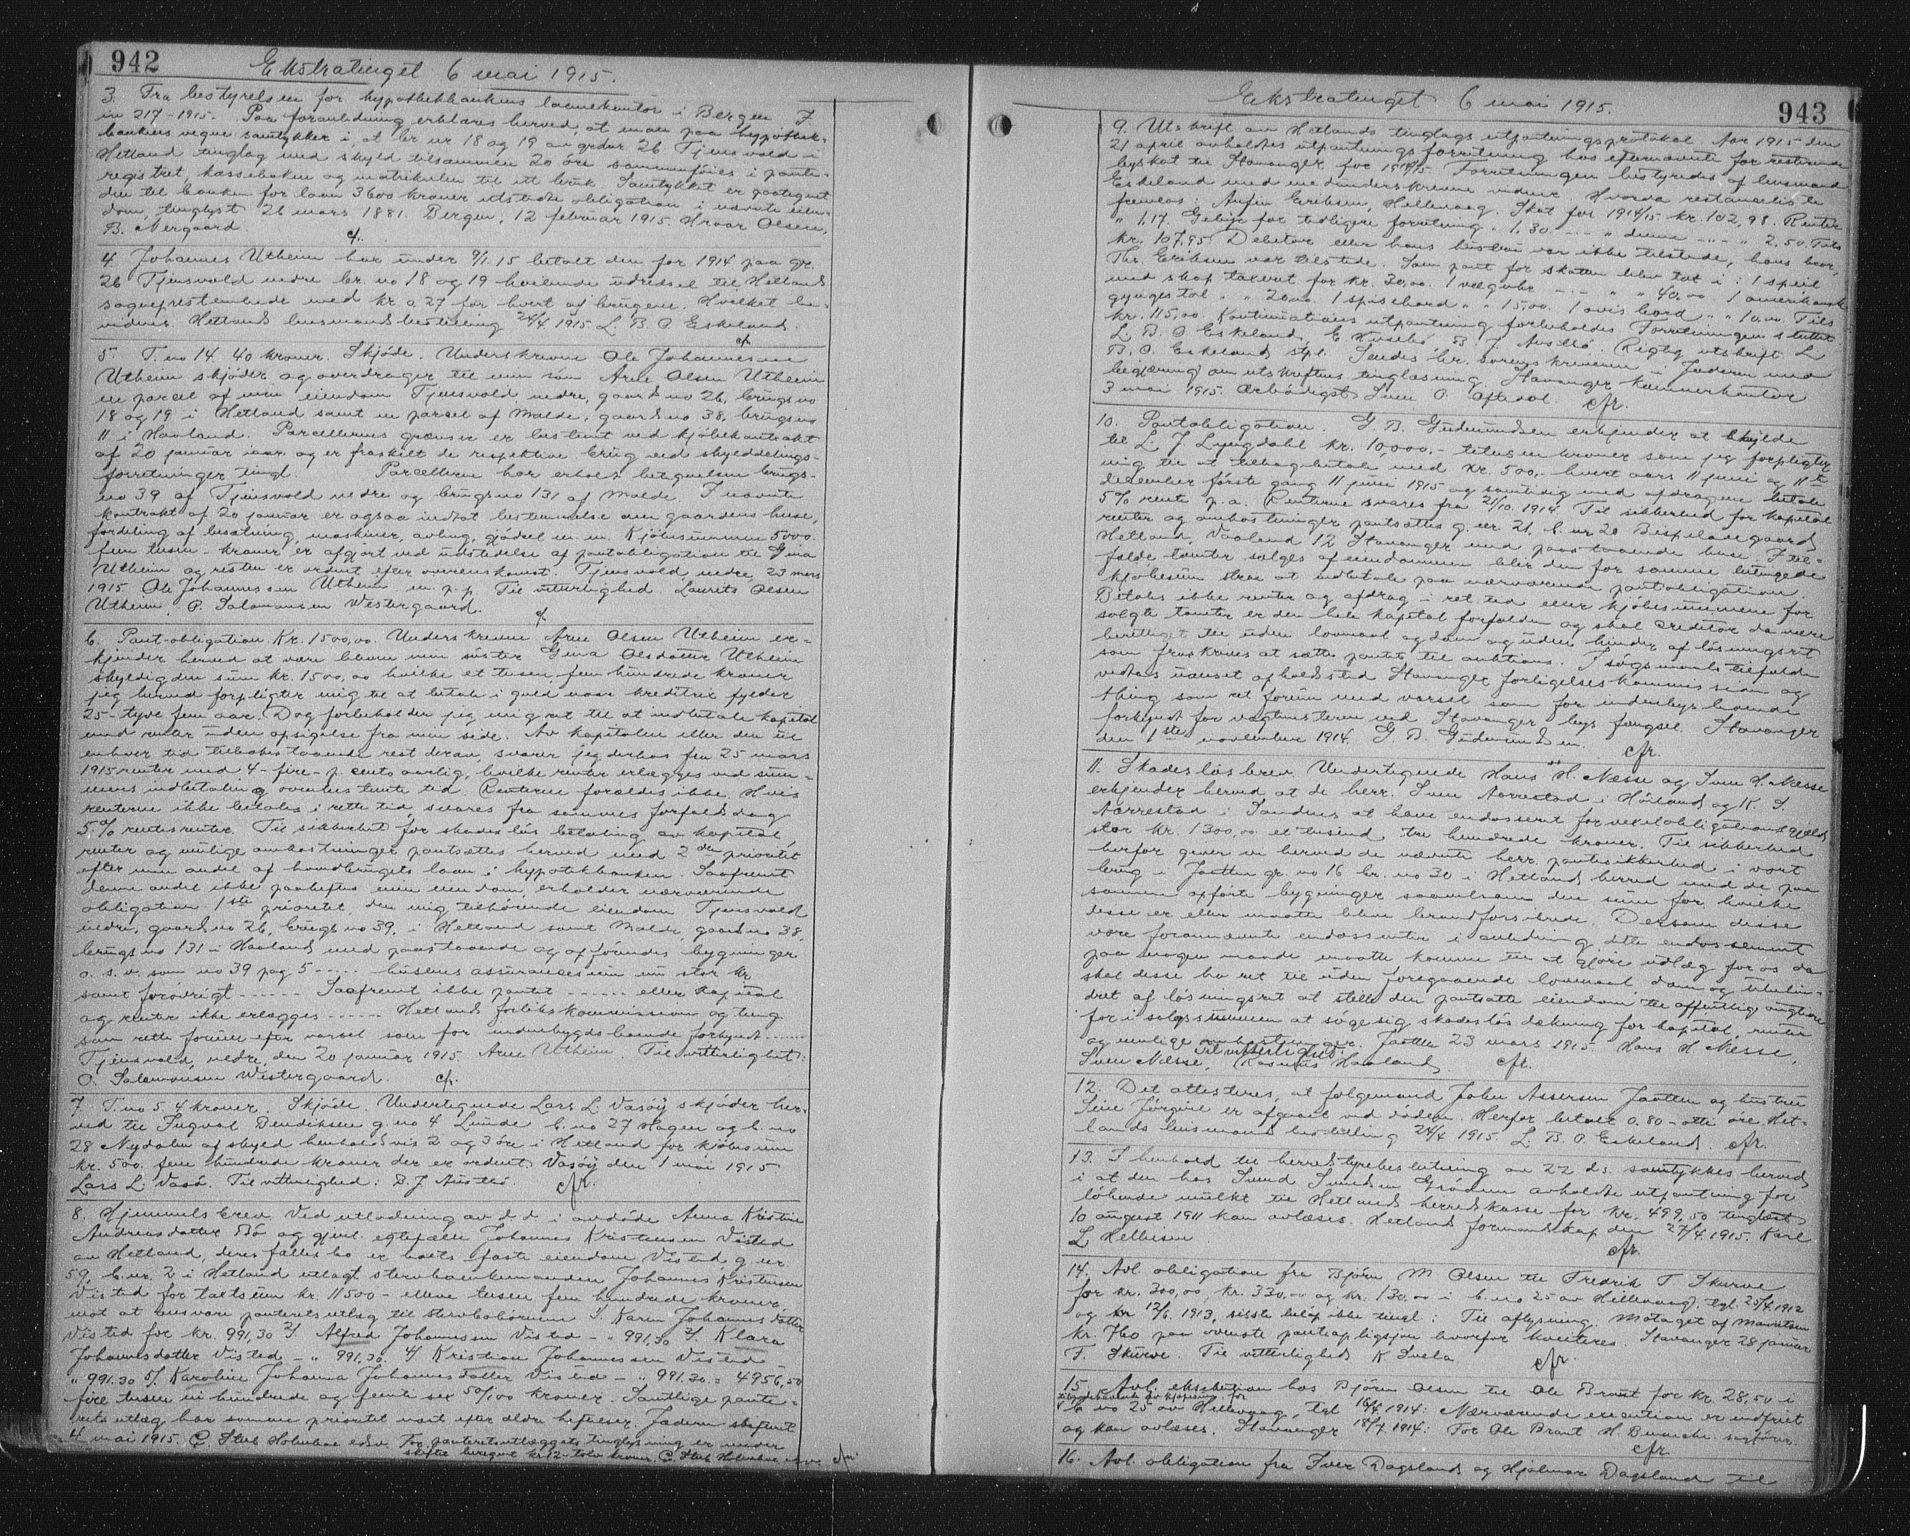 942
Ekstratinget 6 mai 1915.
3. Fra bestyrelsen for hypothekbankens laanekontor i Bergen J.
nr 217-1915. Paa foranledning erklæres herved, at man paa hypothek-
bankens vegne samtykker i, at br nr 18 og 19 av grdnr 26 Tjensvold i
Hetland tinglag med skyld tilsammen 20 øre sammenføies i pante-
registret, kassebøken og matrikulen til ett bruk. Samtykket er
den til banken for laan 3600 kroner utstedte obligation i nævnte eien-
dom, tinglyst 26 mars 1881. Bergen, 12 februar 1915. Hroar Olsen,
B. Nergaard cf.
4. Johannes Utheim har under 9/1 15 betalt den for 1914 paa gr.
26 Tjensvold nedre br. no 18 og 19 hvilende utredsel til Hetland
sogneprestembede med kr 0,27 for hvert af brugene. Hvilket be-
vidnes. Hetland lensmandsbestilling 24/4 1915 L. B. O. Eskeland.
cfr
5. T. no 14. 40 kroner. Skjøde. Underskrevne Ole Johannesen
Utheim skjøder og overdrager til min søn Arne Olsen Utheim
en parcel af min eiendom Tjensvold nedre, gaards no 26, brugs no
18 og 19 i Hetland samt en parsel af Malde, gaards no 38, brugs no
11 i Haaland. Parcellernes grænser er bestemt ved kjøbekontrakt
af 20 januar iaar og er fraskilt de respektive brug ved skylddelings-
forretninger tingl. Parcellerne har erholdt betegnelsen brugs-
no 39 af Tjensvold nedre og brugs no 131 af Malde. I nævnte
kontrakt af 20 januar er ogsaa indtat bestemmelse om gaardens huse,
fordeling af besætning, maskiner, avling, gjødsel m. m. Kjøbesummen 5000.
fem tusen - kroner er afgjort ved utstedelse af pantobligation til Gina
Utheim og resten er ordnet efter overenskomst. Tjensvold, nedre, 23 mars
1915. Ole Johannessen Utheim m. p. p. Til vitterlighed Laurits Olsen
Utheim, O. Salamonsen Westergaard.
cf.
6. Pant-obligation. Kr. 1500,00. Underskrevne Arne Olsen Utheim er-
kjender herved at være bleven min søster Gina Olsdatter Utheim
skyldig den sum kr. 1500,00 hvilke et tusen fem hundrede kroner
jeg herved forpligter mig til at betale i guld naar kreditrix fylder
25 - tyve fem aar. Dog forbeholder jeg mig ret til at indbetale kapital
med renter uden opsigelse fra min side. Av kapitalen eller den til
enhver tid tilbakestaaende rest derav, svarer jeg derhos fra 25 mars
1915 renter med 4 - fire - p. cents aarlig, hvilke renter erlægges ved sum-
mens indbetaling ovenbestemte tid. Renterne forældes ikke. Hvis
renterne ikke betales i rette tid, svares fra sammes forfaldsdag
5% rentesrenter. Til sikkerhet for skadesløs betaling av kapital,
renter og mulige omkostninger pantsættes herved med 2den prioritet
efter min andel af hovedbrugets laan i hypothekbanken. Saafremt
denne andel ikke paaheftes min eiendom, erholder nærværende
obligation 1ste prioritet, den mig tilhørende eiendom Tjensvold
nedre, gaards no 26, brugs no 39, i Hetland samt Malde, gaards no 38,
brugs no 131 i Haaland med paastaaende og opførendes bygninger
o. s. v. som no 39 pag 5 ..... husenes assurancesum nu stor kr.
samt forøvrigt ...... Saafremt ikke pantet ...... eller kapital
og renter ikke erlægges ..... Hetlands forlikskommission og ting
som rette forum efter varsel som for indenbygds boende forkyndt ......
Tjensvold, nedre, den 20 januar 1915. Arne Utheim. Til vitterlighet:
O. Salomonsen Westergaard. cfr.
7. T. no 5. 4 kroner. Skjøde. Undertegnede Lars L. Vasøy skjøder her-
ved til Ingval Bendiksen g. no 4 Lunde b. no 27 Hagen og b. no
28 Nydalen af skyld henholdsvis 2 og 3 øre i Hetland for kjøbesum
kr. 500. fem hundrede kroner der er ordnet. Vasøy den 1 mai 1915
Lars L. Vasø. Til vitterlighed: B. J. Austbø. cfr.
8. Hjemmelsbrev. Ved utlodning av d.d. i avdøde Anna Kristine
Andreasdatter Bø og gjenl. egtefælle Johannes Kristensen Visted
av Hetland, deres fælles bo er boets faste eiendom Visted g. nr.
59, b. nr. 2 i Hetland utlagt stervboenkemanden Johannes Kristensen
Visted for takstsum kr. 11500 - elleve tusen fem hundrede kroner,
mot at ansvare panteretsutlæg til stervboebørnene 1. Karen Johannesdatter
Visted for kr. 991,30 2/. Alfred Johannessen Visted - " 991,30 3/. Klara
Johannesdatter Visted - " 991,30. 4/ Kristian Johannessen Visted -
" 991.30 5/. Karoline Johanna Johannesdatter Visted - " 991.30. = 4956,50
fire tusen ni hundrede og femti sex 50/100 kroner. Samtlige pante-
retsutlæg har samme prioritet næst efter ældre heftelser. Jæderen skifteret
4 mai 1915. C. Stub Holmboe edsv. For panteretsutlæggets tinglysning er under
skiftet beregnet kr 12 - tolv kroner. C. Stub Holmboe edsv. cfr
943
Ekstratinget 6 mai 1915.
9. Utskrift av Hetlands tinglags utpantningsprotokol. Aar 1915 den
21 april avholdtes utpantningsforretning hos efternævnte for resterende
byskat til Stavanger for 1914/15. Forretningen bestyredes af lensmand
Eskeland med medunderskrevne vidner. Hvorda restanceliste
fremlos: Anfin Eriksen, Hillevaag. Skat for 1914/15 kr. 102,98. Renter
" 1,17. Gebyr for tidligere forretning " 1,30. - - " denne - " - " 2,50. Tils
kr. 107,95. Debitor eller hans hustru var ikke tilstede, hans bror,
Thr. Eriksen var tilstede. Som pant for skatten blev tat i: 1 speil
med skap taxeret for kr. 30,00. 1 væguhr - " - " " 40,00 1 amerikansk
gyngestol " " 20,00. 1 spisebord " " 15,00. 1 avis bord " " 10,00. Tils
kr. 115,00. Kontinuations utpantning forbeholdes. Forretningen sluttet
L. B. O. Eskeland, E. Husebø, B. J. Austbø. Rigtig utskrift L.
B. O. Eskeland spl. Sendes hr. sorenskriveren i Jæderen med
begjæring om utskriftens tinglæsning. Stavanger kæmnerkontor
3 mai 1915. Ærbødigst Sven O. Aftedal. cfr.
10. Pantobligation. G. B. Gudmundsen erkjender at skylde
til L. J. Lyngdahl kr. 10,000.- titusen kroner som jeg forpligter
mig til at tilbagebetale med kr. 500,- hvert aars 11 juni og 11te
december første gang 11 juni 1915 og samtidig med afdragene betale
5% rente p. a. Renterne svares fra 21/10. 1914. Til sikkerhed for kapital
renter og omkostninger pantsættes g. nr 21, b. nr 20 Bispeladegaard,
Hetland, Vaaland 12 Stavanger med paastaaende huse. I til-
fælde tomter selges af eiendommen blir den for samme betingede
kjøbesum strax at indbetale paa nærværende pantobligation.
Betales ikke renter og afdrag i ret tid eller kjøbesummene for
solgte tomter er den hele kapital forfalden og skal creditor da være
berettiget til uden lovmaal og dom og uden hinder af løsningsret
som fraskrives at sætte pantet til auktion. I søgsmaalstilfælde
vedtas uanset opholdssted Stavanger forligelseskommission og
thing som ret forum med varsel som for indenbys boende
forkyndt for vagtmesteren ved Stavanger bys fængsel. Stavanger
den 1ste november 1914. G. B. Gudmundsen. cfr.
11. Skadesløsbrev. Undertegnede Hans H. Næsse og Sven H. Næsse
erkjender herved at de herr. Sven Aarrestad i Høiland og K. S.
Aarrestad i Sandnes at have endosseret for vexelobligationsgjeld
stor kr. 1300,00 et tusind tre hundrede kroner. Til sikkerhed
herfor giver vi herved de nævnte herr. pantesikkerhed i vort
brug i Jaatten gr. no 16 br. no 30 i Hetland herred med de paa
samme opførte bygninger saavelsom den sum for hvilke
disse er eller maatte blive brandforsikrede. Dersom disse
vore forannævnte endossenter i anledning dette endossement
paa nogen maade maatte komme til at gjøre udlæg for os da
skal disse ha ret til uden foregaaende lovmaal, dom og uhin-
dret af løsningsret at stelle den pantsatte eiendom til offentlig auktion
for i salgssummen at søge sig skadesløs dækning for kapital, renter
og mulige omkostninger. Jaatten 23 mars 1915. Hans H. Næsse,
Til vitterlighet:
Sven Næsse, Rasmus Haaland cfr.
12. Det attesteres, at følgemand John Assersen Jaatten og hustru
Seine Jørgine er afgaaet ved døden. Herfor betalt 0.80 - otti øre. Het-
lands lensmandsbestilling 24/4 1915. L. B. O. Eskeland. cfr.
13. I henhold til herredstyrebeslutning av 22 ds. samtykkes herved
i at den hos Svend Svendsen Grødem avholdte utpantning for
løbende mulkt til Hetland herredskasse for kr. 499,50 tinglæst
10 august 1911 kan avlæses. Hetland formandskap den 27/4 1915. Karl
L. Kellesen cfr.
14. Avl. obligation fra Bjørn M Olsen til Fredrik T. Skurve
for kr. 300,00, kr. 330,00 og kr. 130,00 i b. no 25 av Hillevaag, tgl. 25/4 1912
og kr 12/6 1913, sidste beløb ikke tingl: Til aflysning. Motaget af
kr. 760 paa ovenste pantapligsjon hvorfor kviteres. Stavanger 28 januar
F. Skurve. Til vitterlighed K Svela cfr.
15. Avl. eksekution hos Bjørn Olsen til Ole Brant for kr. 28,50 i
b. no 25 av Hillevaag, tgl 1914: Nærværende execution er indfriet
og kan avlæses. Stavanger 18/7 1914: For Ole Brant H. sagfører.
cfr.
16. Avl. obligation fra Iver Dagsland og Hjalmar Dagsland til